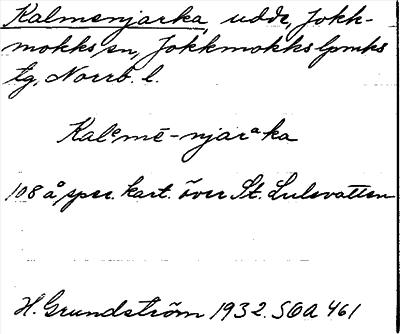 Kalmenjarka, udde, Jokk-
mokks sn, Jokkmokks lpmks
tg, Norrb. l.
Kalᵉmē-njarᵃka
108 å spec. kart. över St. Lulevatten
H. Grundström 1932. SOA 461